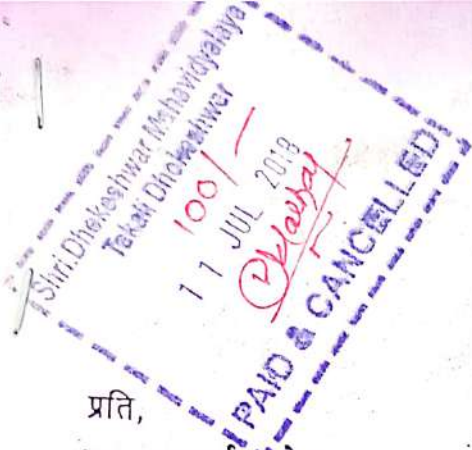 Shri.Dhokeshwar Mahavidyalaya
Takali Dhokeshwar
100/-
11 JUL 2018
PAID & CANCELLED
प्रति,